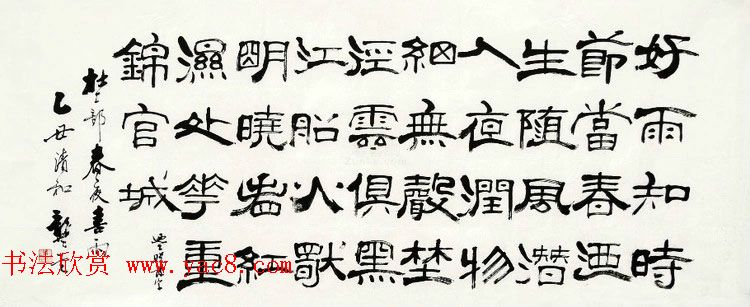 好雨知時
節當春迺
生随風潜
入夜潤物
細無聲埜
徑雲俱黑
江船火獨
明曉看紅
濕处花重
錦官城
杜工部春夜喜雨
乙丑清和 龔望
书法欣赏 www.yac8.com